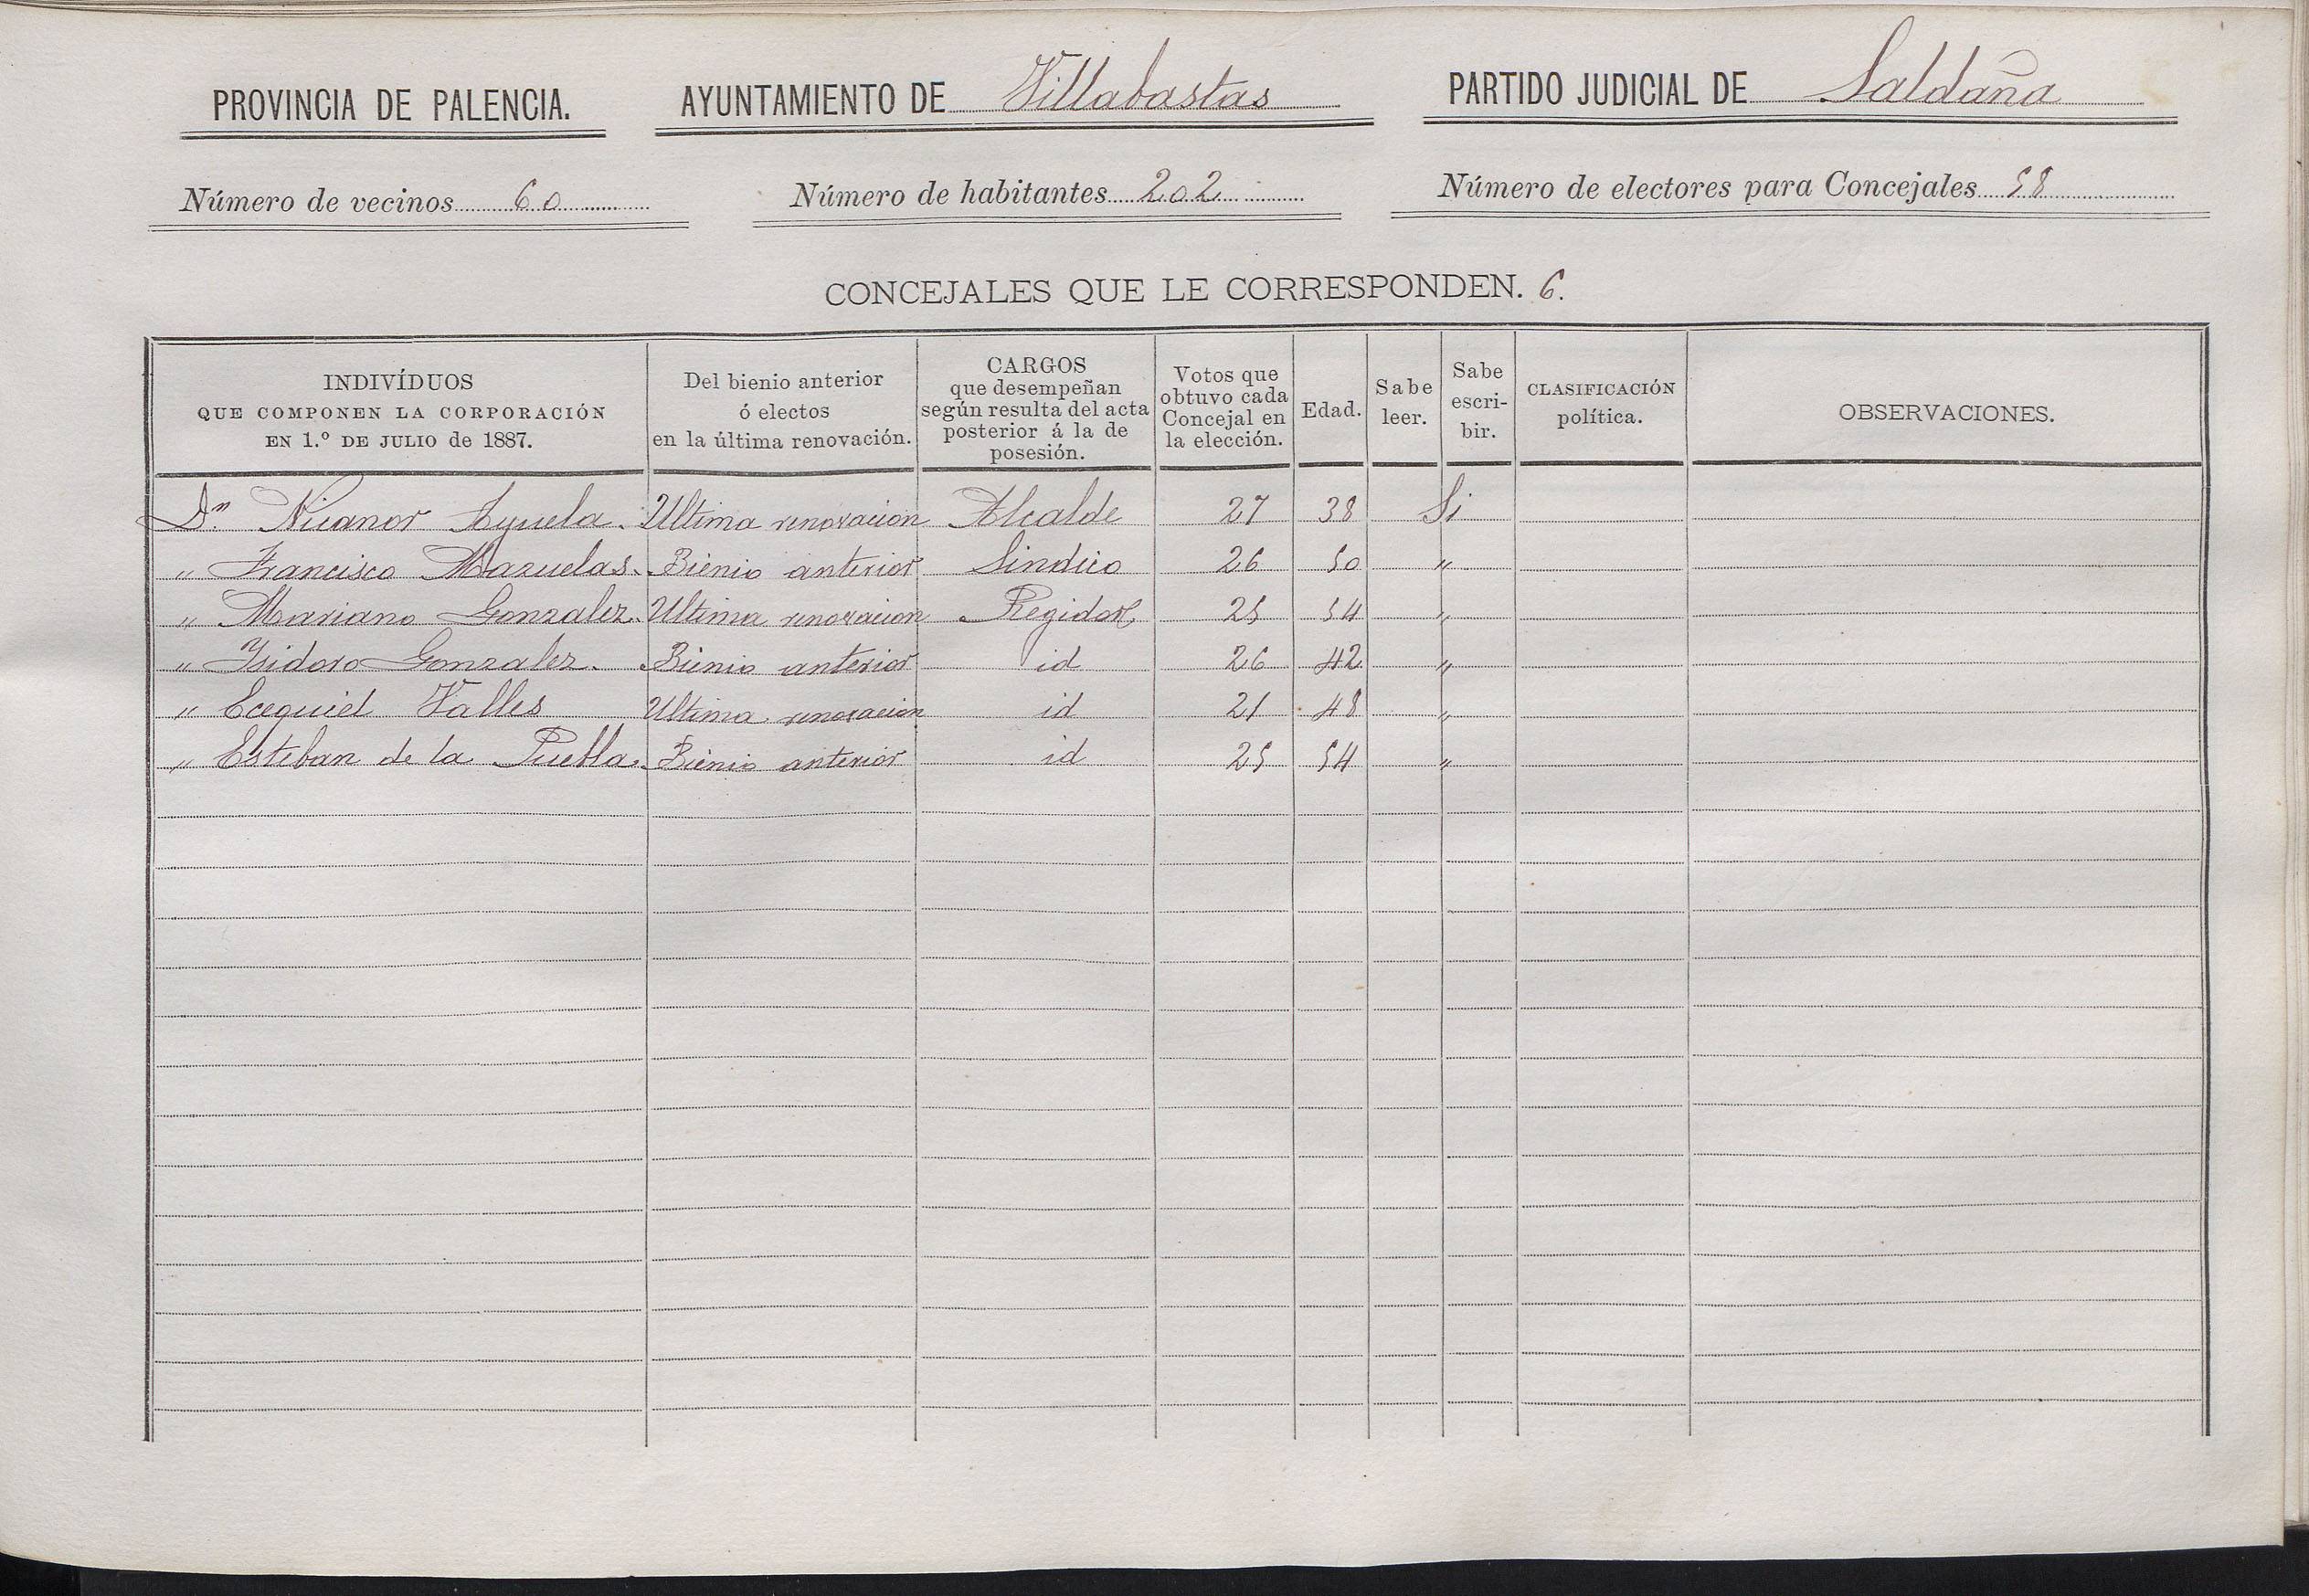 PROVINCIA DE PALENCIA. AYUNTAMIENTO DE Villabastas PARTIDO JUDICIAL DE Saldaña
Número de vecinos 60 Número de habitantes 202 Número de electores para Concejales 58
CONCEJALES QUE LE CORRESPONDEN. 6.
INDIVÍDUOS
QUE COMPONEN LA CORPORACIÓN
EN 1.º DE JULIO de 1887.
Del bienio anterior
ó electos
en la última renovación.
CARGOS
que desempeñan
según resulta del acta
posterior á la de
posesión.
Votos que
obtuvo cada
Concejal en
la elección.
Edad.
Sabe
leer.
Sabe
escri-
bir.
CLASIFICACIÓN
política.
OBSERVACIONES.
Dn Nicanor Ayuela. Ultima renovacion Alcalde 27 38 Si
" Francisco Mazuelas. Bienio anterior Sindico 26 50 "
" Mariano Gonzalez. Ultima renovacion Regidor 25 54 "
" Isidoro Gonzalez. Bienio anterior id 26 42 "
" Ecequiel Valles Ultima renovacion id 21 48 "
" Esteban de la Puebla. Bienio anterior id 25 54 "